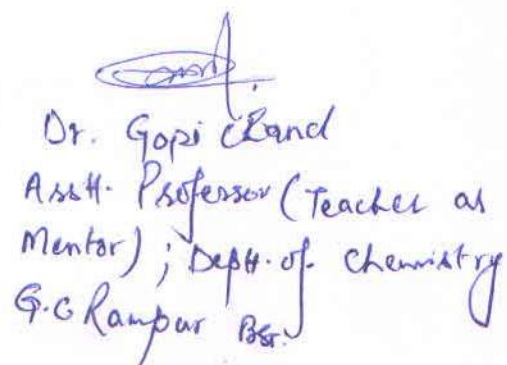 Dr. Gopi Chand
Asstt. Professor (Teacher as
Mentor) ; Deptt. of Chemistry
G.C Rampur Bsr.